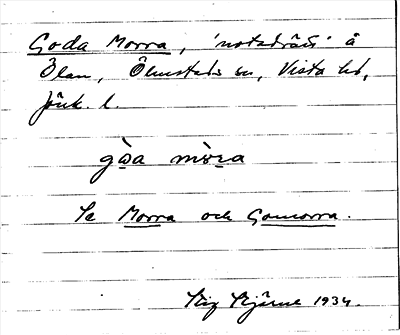 Goda Morra, 'notadräkt' å
Ölan, Ölmstads sn, Vista hd,
Jönk. l.
gòa mòra
Se Morra och Gomorra.
Stig Stjärne 1934.